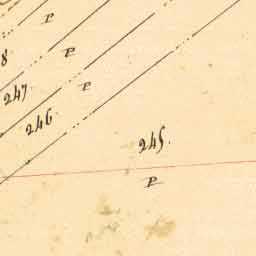 P
P
8
P
247
246
245.
P